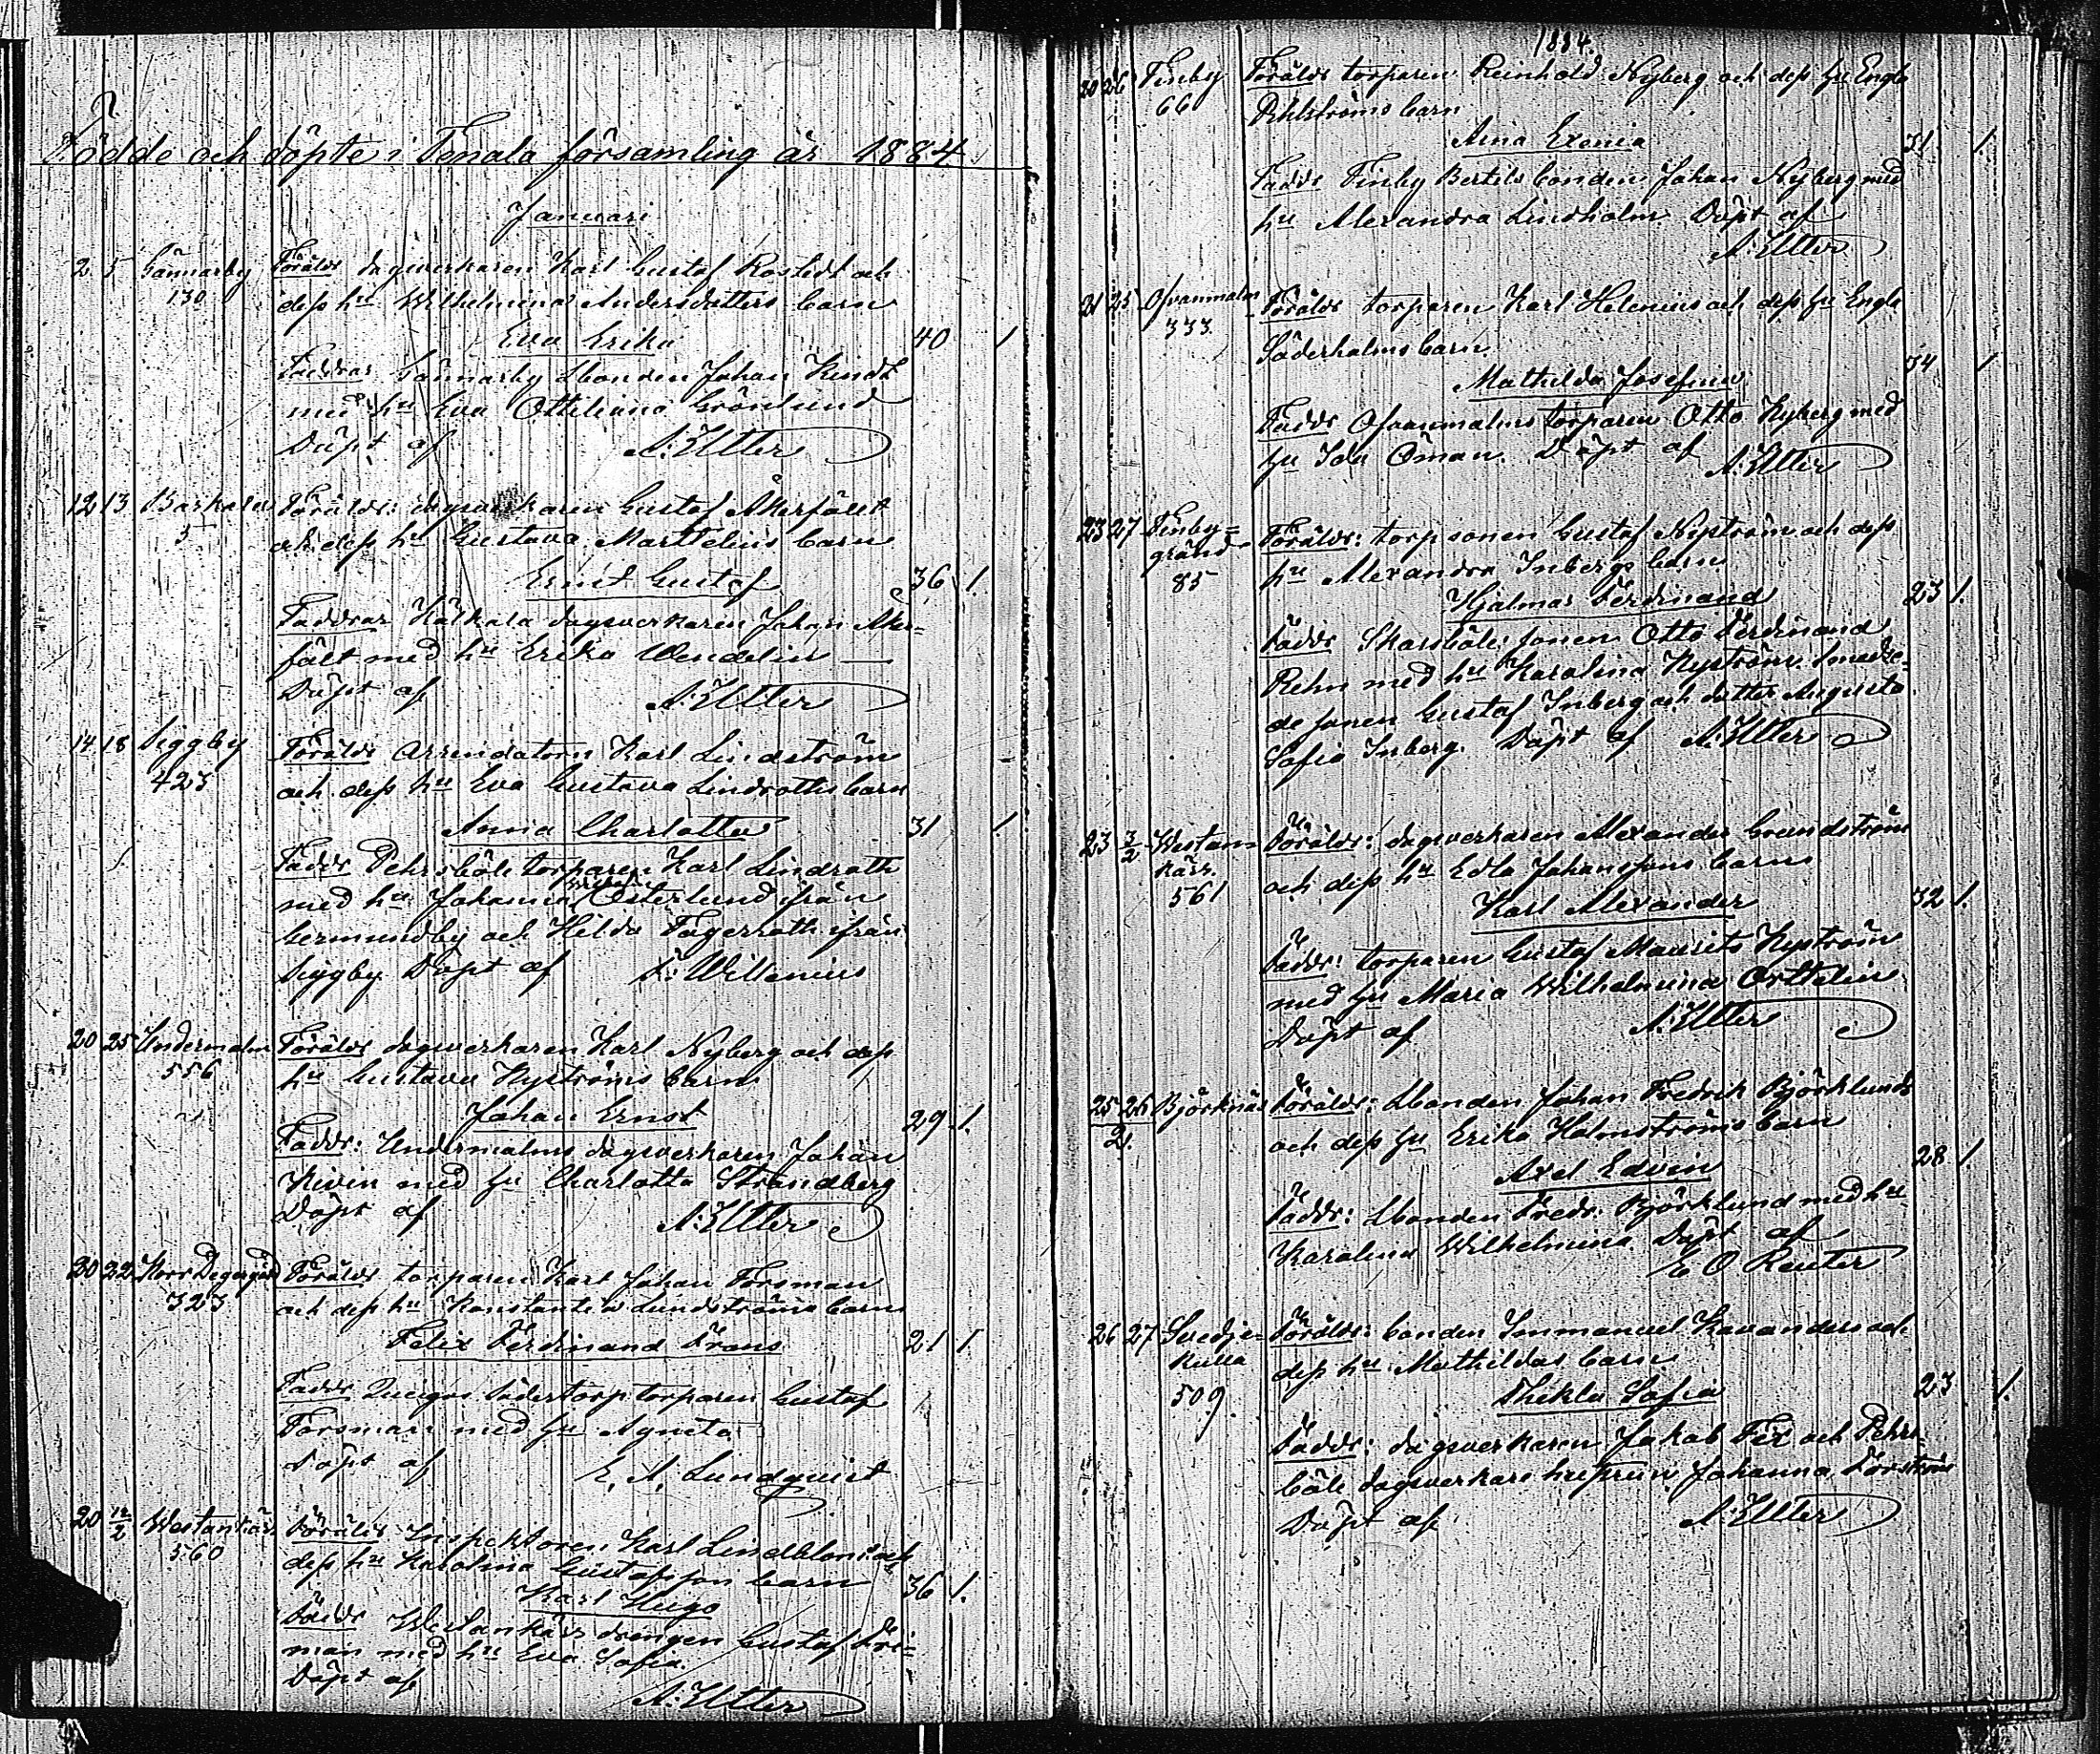 Födde och döpte i Tenala församling år 1884
Januari
2 5 Gännarby Föräldr dagsverkaren Karl Gustaf Rostedt och
130 dess hu Wilhelmina Andersdotters barn
Eva Erika 40 1
Faddrar Gännarby Lbonden Johan
med hu Eva Ottiliana Grönlund
Döpt af A: Utter
12 13 Föräldr: dagsverkaren Gustaf Åkerfält
5 och dess hu Gustava Martelius barn
Ernst Gustaf 36 1.
Faddrar dagsverkaren Johan Åker-
fält med hu Erika Wendelin
Döpt af A: Utter
14 18 Siggby Föräldr Arrendatorn Karl Lindström
423 och dess hu Eva Gustava Lindroths barn
Anna Charlotta 31 1
Faddr Pehrsböle torparen Karl Lindroth
med hu Johanna Österlund från
Germundby och Hilda Fagerroth ifrån
Siggby Döpt af F: Willenius
20 25 Undermalm Föräldr dagsverkaren Karl Nyberg och dess
556 hu Gustava Nyströms barn
Johan Ernst 29 1.
Faddr: Undermalms dagsverkaren Johan
Kivin med hu Charlotta Strandberg
Döpt af A: Utter
20 22 Norr Degergård Föräldr torparen Karl Johan Forsman
323 och dess hu Konstantia Lundströms barn
Felix Ferdinand Frans 21 1
Faddr Södertorp torparen Gustaf
Forsman med hu Agneta
Döpt af E. A. Lundquist
20 12/2 Westankärr Föräldr Inspektoren Karl Lindblom och
560 dess hu Karolina Gustafsson barn
Karl Hugo 36 1.
Faddr Westankärr drengen Gustaf Fri-
man med hu Eva Sofia.
Döpt af
A: Utter
1884.
20 26 Finby Föräldr torparen Reinhold Nyberg och dess hu Engla
66 Pihlströms barn
Aina Exenia 31 1.
Faddr Finby Bertils bonden Johan Nyberg med
hu Alexandra Lindholm Döpt af
A: Utter
21 25 Ofvanmalm Föräldr torparen Karl Helenius och dess hu Engla
333 Söderholms barn
Mathilda Josefina 34 1
Faddr Ofvanmalms torparen Otto Nyberg med
hu Ida Öman. Döpt af A: Utter
23 27 Finby= Föräldr: torpsonen Gustaf Nyström och dess
gränd
85 hu Alexandra Inbergs barn
Hjalmar Ferdinand 23 1.
Faddr Skarsböle sonen Otto Ferdinand
Rehn med hu Karolina Nyström.
de sonen Gustaf Inberg och dotter Augusta
Sofia Inberg. Döpt af A: Utter
23 3/2 Westan- Föräldr: dagsverkaren Alexander Grundström
kärr.
561 och dess hu Edla Johanssons barn
Karl Alexander 32 1.
Faddr: torparen Gustaf Maurits Nyström
med hu Maria Wilhelmina Orttelin
Döpt af A: Utter
25 26/2 Björknäs Föräldr: Lbonden Johan Fredrik Björklunds
och dess hu Erika Holmströms barn
Axel Edvin 28 1.
Faddr: Lbonden Fredr: Björklund med hu
Karolina Wilhelmina Döpt af
E O Reuter
26 27 Svedje- Föräldr: bonden Immanuel Kavanders och
kulla dess hu Mathildas barn
509 Thekla Sofia 23 1.
Faddr: dagsverkaren Jakob Fix och Pehrs-
böle dagsverkare hustrun Johanna Forström
Döpt af A: Utter